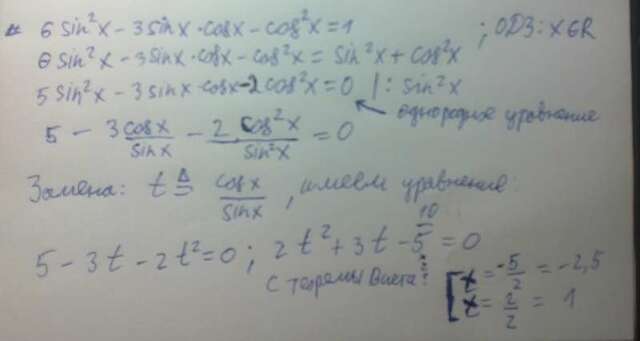 6 sin²x - 3 sinx · cosx - cos²x = 1 ; ОДЗ: x ∈ R
6 sin²x - 3 sinx · cosx - cos²x = sin²x + cos²x
5 sin²x - 3 sinx · cosx - 2 cos²x = 0 | : sin²x
однородное уравнение
5 - 3 cosx/sinx - 2 cos²x/sin²x = 0
Замена: t ≜ cosx/sinx , имеем уравнение:
10
5 - 3t - 2t² = 0 ; 2t² + 3t - 5 = 0
с теоремы Виета: [ t = -5/2 = -2,5
t = 2/2 = 1